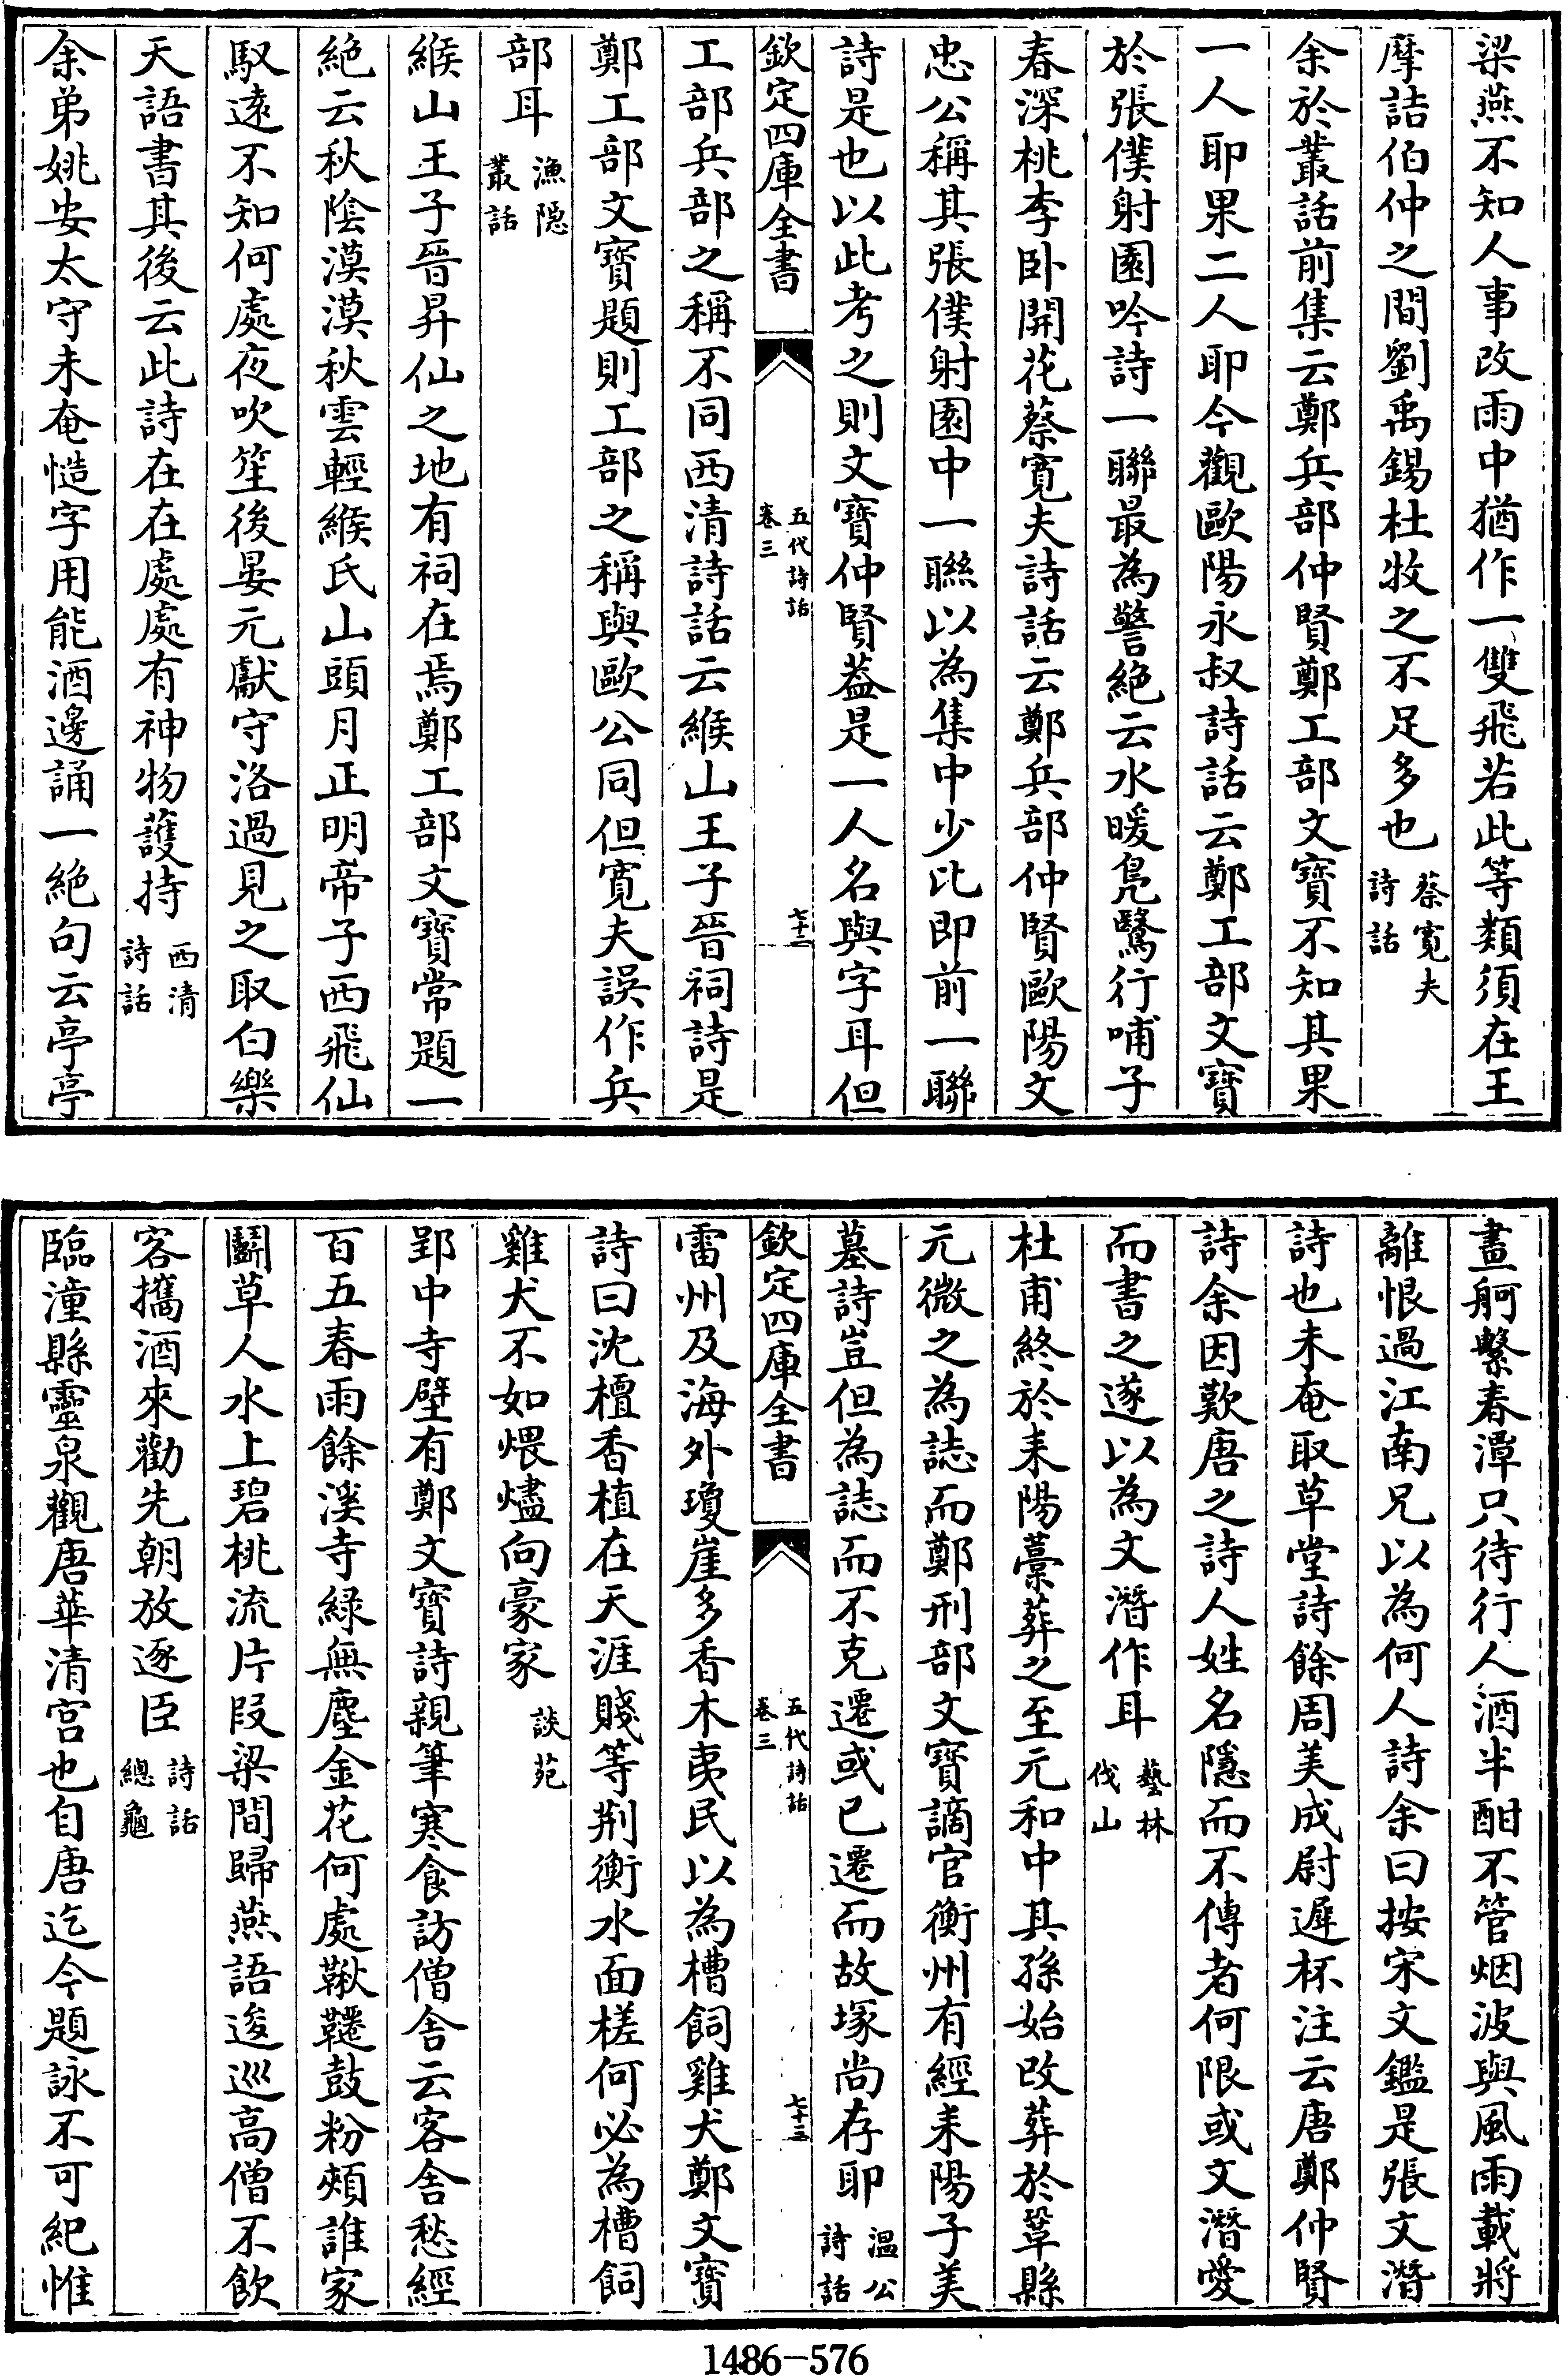 梁燕不知人事改雨中猶作一雙飛若此等類須在王
摩詰伯仲之間劉禹錫杜牧之不足多也蔡寬夫詩話
余於叢話前集云鄭兵部仲賢鄭工部文寶不知其果
一人耶果二人耶今觀歐陽永叔詩話云鄭工部文寶
於張僕射園吟詩一聯最為警絶云水暖鳧鷖行哺子
春深桃李卧開花蔡寛夫詩話云鄭兵部仲賢歐陽文
忠公稱其張僕射園中一聯以為集中少比即前一聯
詩是也以此考之則文寶仲賢葢是一人名與字耳但
欽定四庫全書
五代詩話
卷三
七十二
工部兵部之稱不同西清詩話云緱山王子晉祠詩是
鄭工部文寶題則工部之稱與歐公同但寛夫誤作兵
部耳漁隱叢話
緱山王子晉昇仙之地有祠在焉鄭工部文寶常題一
絶云秋陰漠漠秋雲輕緱氏山頭月正明帝子西飛仙
馭遠不知何處夜吹笙後晏元獻守洛過見之取白樂
天語書其後云此詩在在處處有神物護持西清詩話
余弟姚安太守未奄慥字用能酒邊誦一絶句云亭亭
畫舸繫春潭只待行人酒半酣不管烟波與風雨載將
離恨過江南兄以為何人詩余曰按宋文鑑是張文潛
詩也未奄取草堂詩餘周美成尉遲杯注云唐鄭仲賢
詩余因歎唐之詩人姓名隱而不傳者何限或文潛愛
而書之遂以為文潛作耳藝林伐山
杜甫終於耒陽藁葬之至元和中其孫始改葬於鞏縣
元微之為誌而鄭刑部文寶謫官衡州有經耒陽子美
墓詩豈但為誌而不克遷或已遷而故塚尚存耶温公詩話
欽定四庫全書
五代詩話
卷三
七十三
雷州及海外瓊崖多香木夷民以為槽飼雞犬鄭文寶
詩曰沈檀香植在天涯賤等荆衡水面槎何必為槽飼
雞犬不如煨燼向豪家談苑
郢中寺壁有鄭文寶詩親筆寒食訪僧舍云客舍愁經
百五春雨餘溪寺緑無塵金花何處鞦韆鼓粉頰誰家
鬭草人水上碧桃流片叚梁間歸燕語逡巡高僧不飲
客攜酒來勸先朝放逐臣詩話總龜
臨潼縣靈泉觀唐華清宫也自唐迄今題詠不可紀惟
1486-576